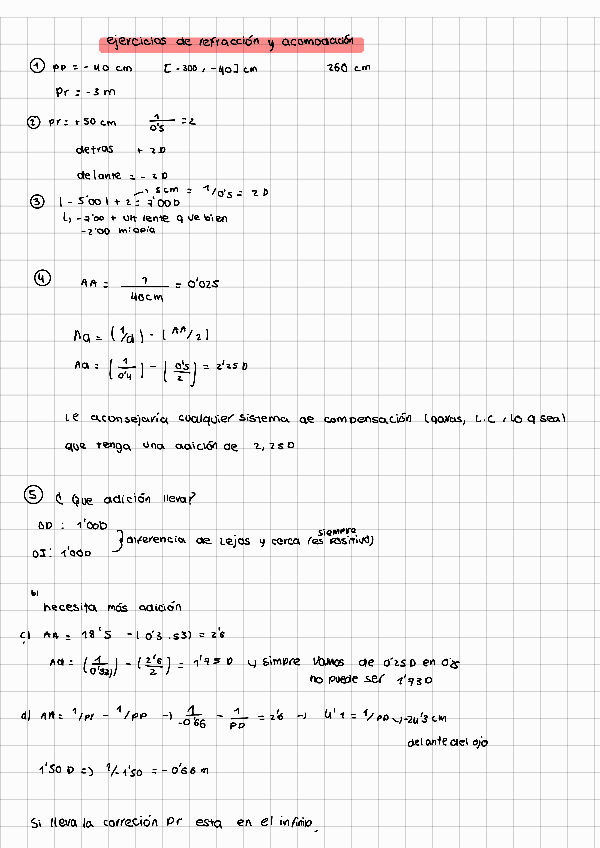 ejercicios de refracción y acomodación
① pp = - 40 cm [-300, -40] cm 260 cm
Pr = - 3 m
② pr = +50 cm 1/0'5 = 2
detras + 2D
delante = - 2D
③ |- 5'00| + 2 = 7'00D → 5cm = 1/0'5 = 2D
↳ -7'00 + un lente q ve bien
-2'00 miopia
④ AA = 1/40cm = 0'025
Ad = (1/d) - [AA/2]
Ad = [1/0'4] - [0'5/2] = 2'25D
Le aconsejaría cualquier sistema de compensación (gafas, L.C, lo q sea)
que tenga una adición de 2,25D
⑤ ¿ Que adición lleva?
OD : 1'00D
OI : 1'00D } diferencia de lejos y cerca (es siempre positivo)
b)
necesita más adición
c) AA = 18'5 - (0'3 . 53) = 2'6
Ad = (1/0'32) - (2'6/2) = 1'75 D ↳ simpre vamos de 0'25D en 0'25
no puede ser 1'73D
d) AA = 1/pr - 1/pp → 1/-0'66 - 1/pp = 2'6 → 4'1 = 1/pp → -24'3 cm
delante del ojo
1'50 D => 1/-1'50 = - 0'66 m
Si lleva la correción pr esta en el infinito.